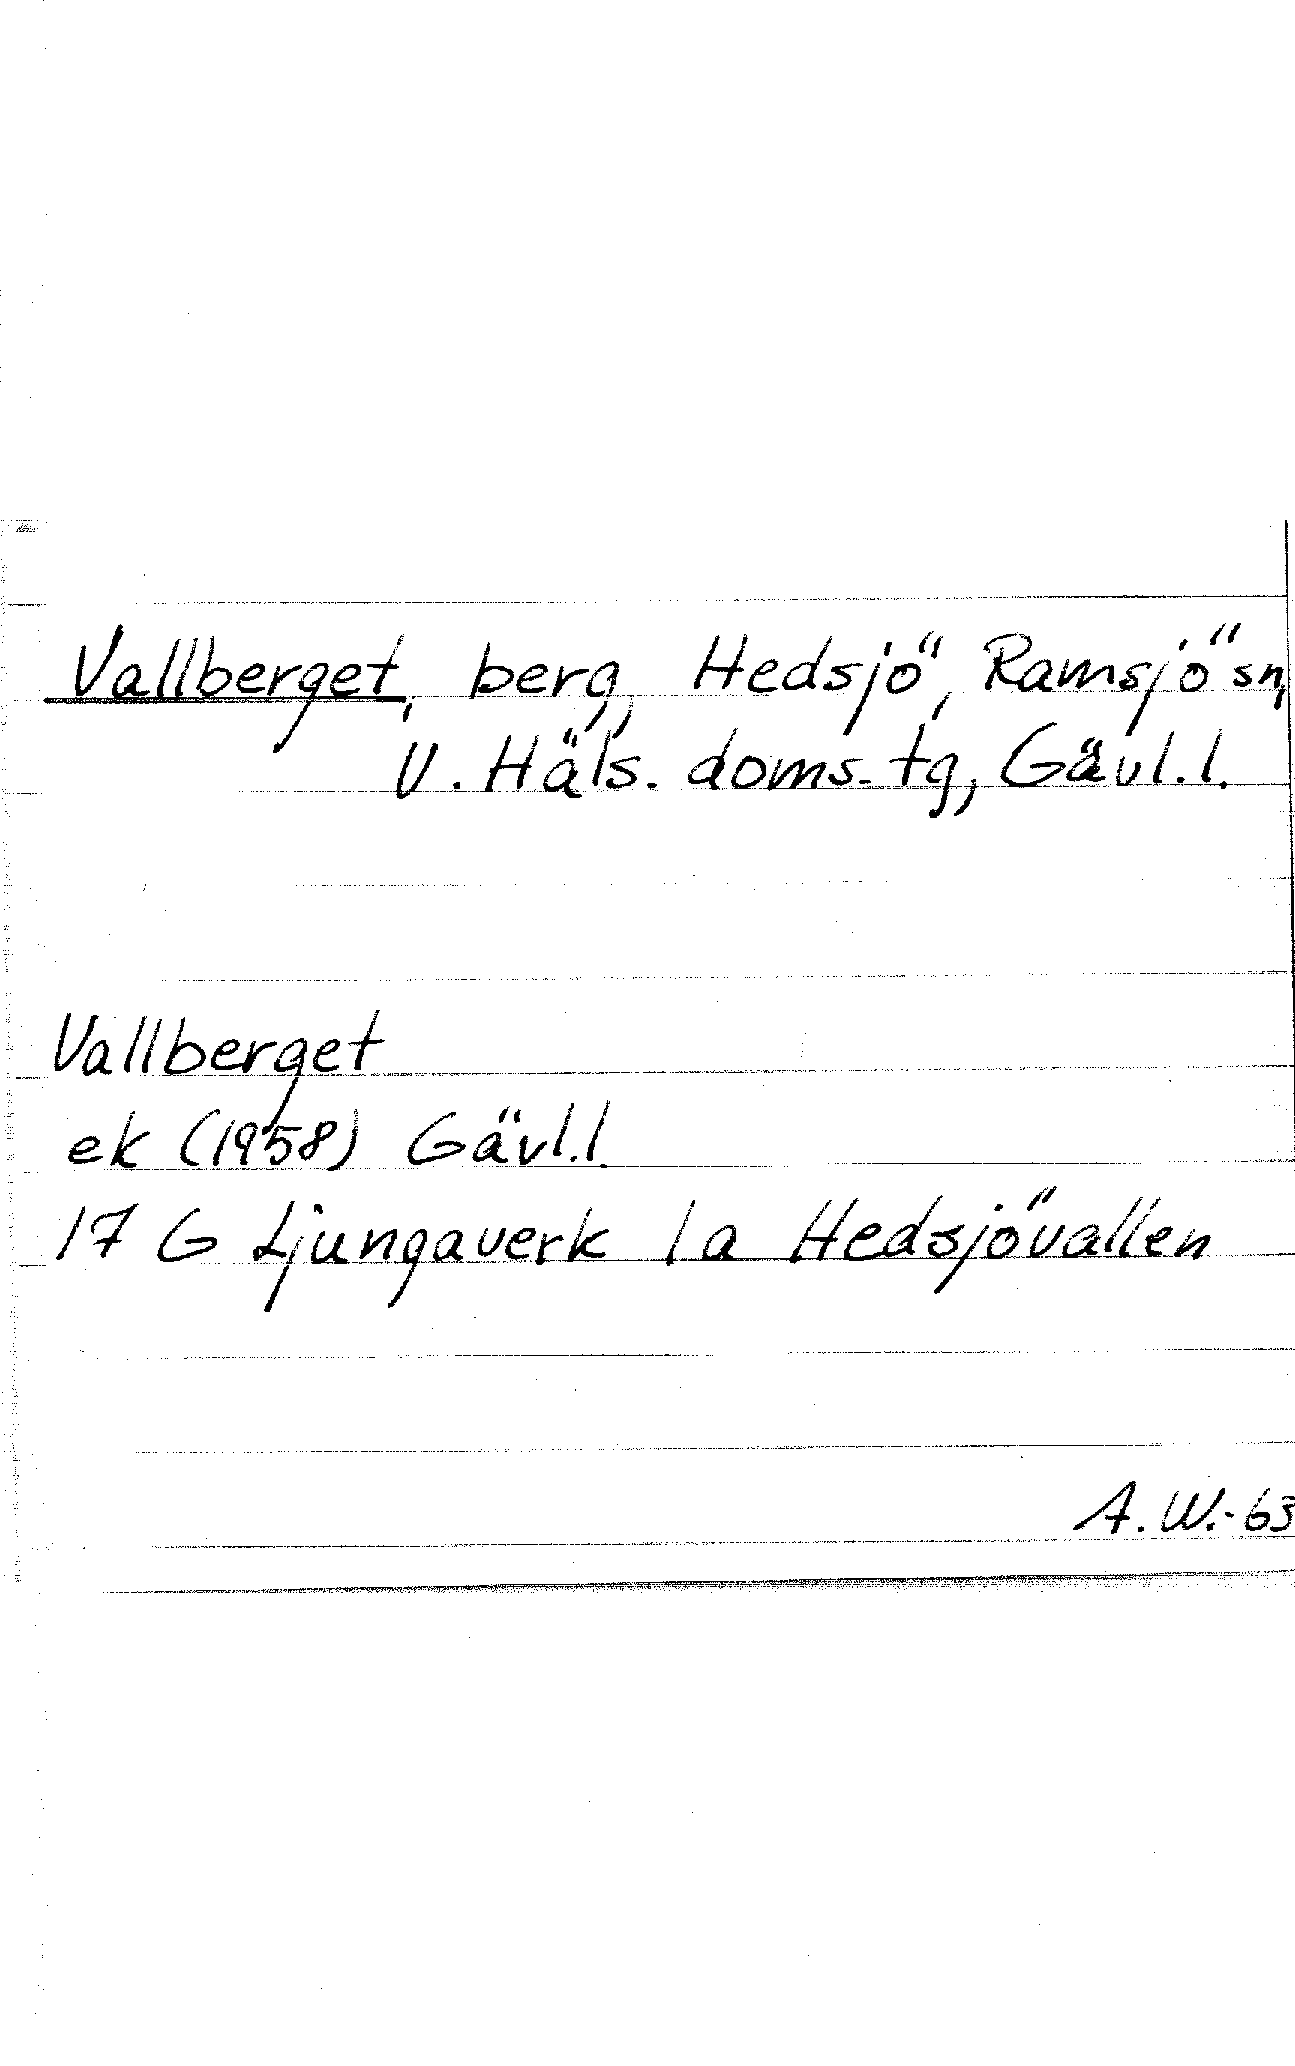 Vallberget, berg, Hedsjö, Ramsjö sn,
V. Häls. doms. tg, Gävl. l.
Vallberget
ek (1958) Gävl. l.
17 G Ljungaverk 1a Hedsjövallen
A. W. - 63